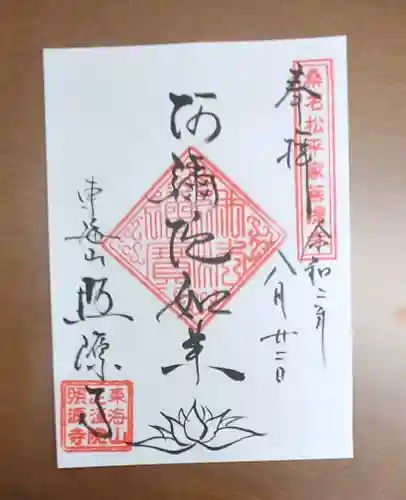 奉拝
桑名松平家菩提
令和二年
八月廿二日
阿彌陀如来
東海山
照源寺
東海山
照源寺